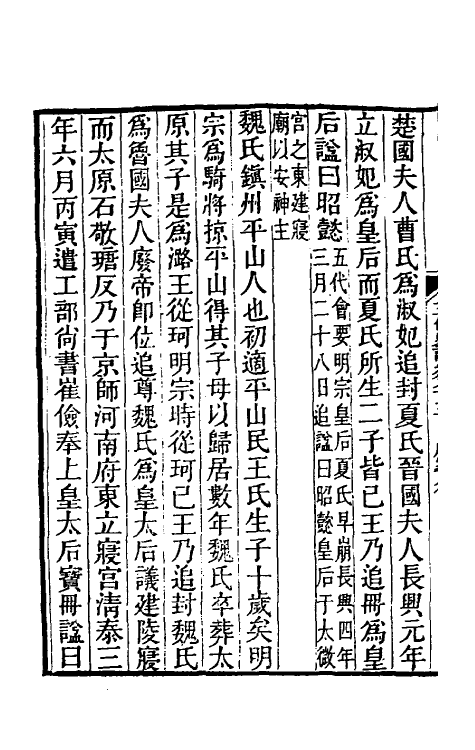 楚國夫人曹氏爲淑妃追封夏氏晉國夫人長興元年
立淑妃爲皇后而夏氏所生二子皆已王乃追冊爲皇
后諡曰昭懿
五代會要明宗皇后夏氏早崩長興四年
三月二十八日追諡曰昭懿皇后于太微
宮之東建寢
廟以安神主
魏氏鎭州平山人也初適平山民王氏生子十歲矣明
宗爲騎將掠平山得其子母以歸居數年魏氏卒葬太
原其子是爲潞王從珂明宗時從珂已王乃追封魏氏
爲魯國夫人廢帝卽位追尊魏氏爲皇太后議建陵寢
而太原石敬瑭反乃于京師河南府東立寢宮淸泰三
年六月丙寅遣工部尙書崔儉奉上皇太后寶冊諡曰